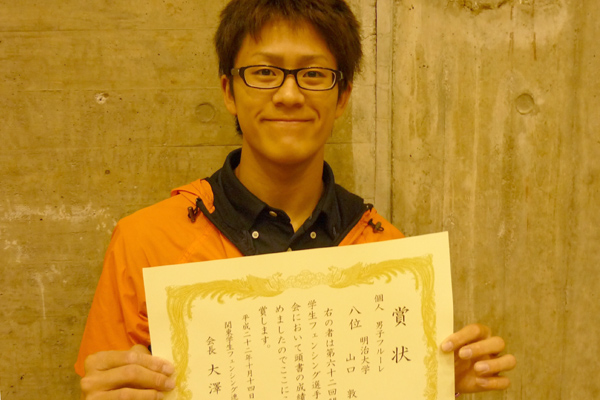 賞状
個人 男子フルーレ
明治大学
八位 山口 敦
右の者は第六十二回
学生フェンシング選手
会において頭書の成績
めましたのでここに
賞します。
平成二十二年十月十四日
関東学生フェンシング連
会長 大澤